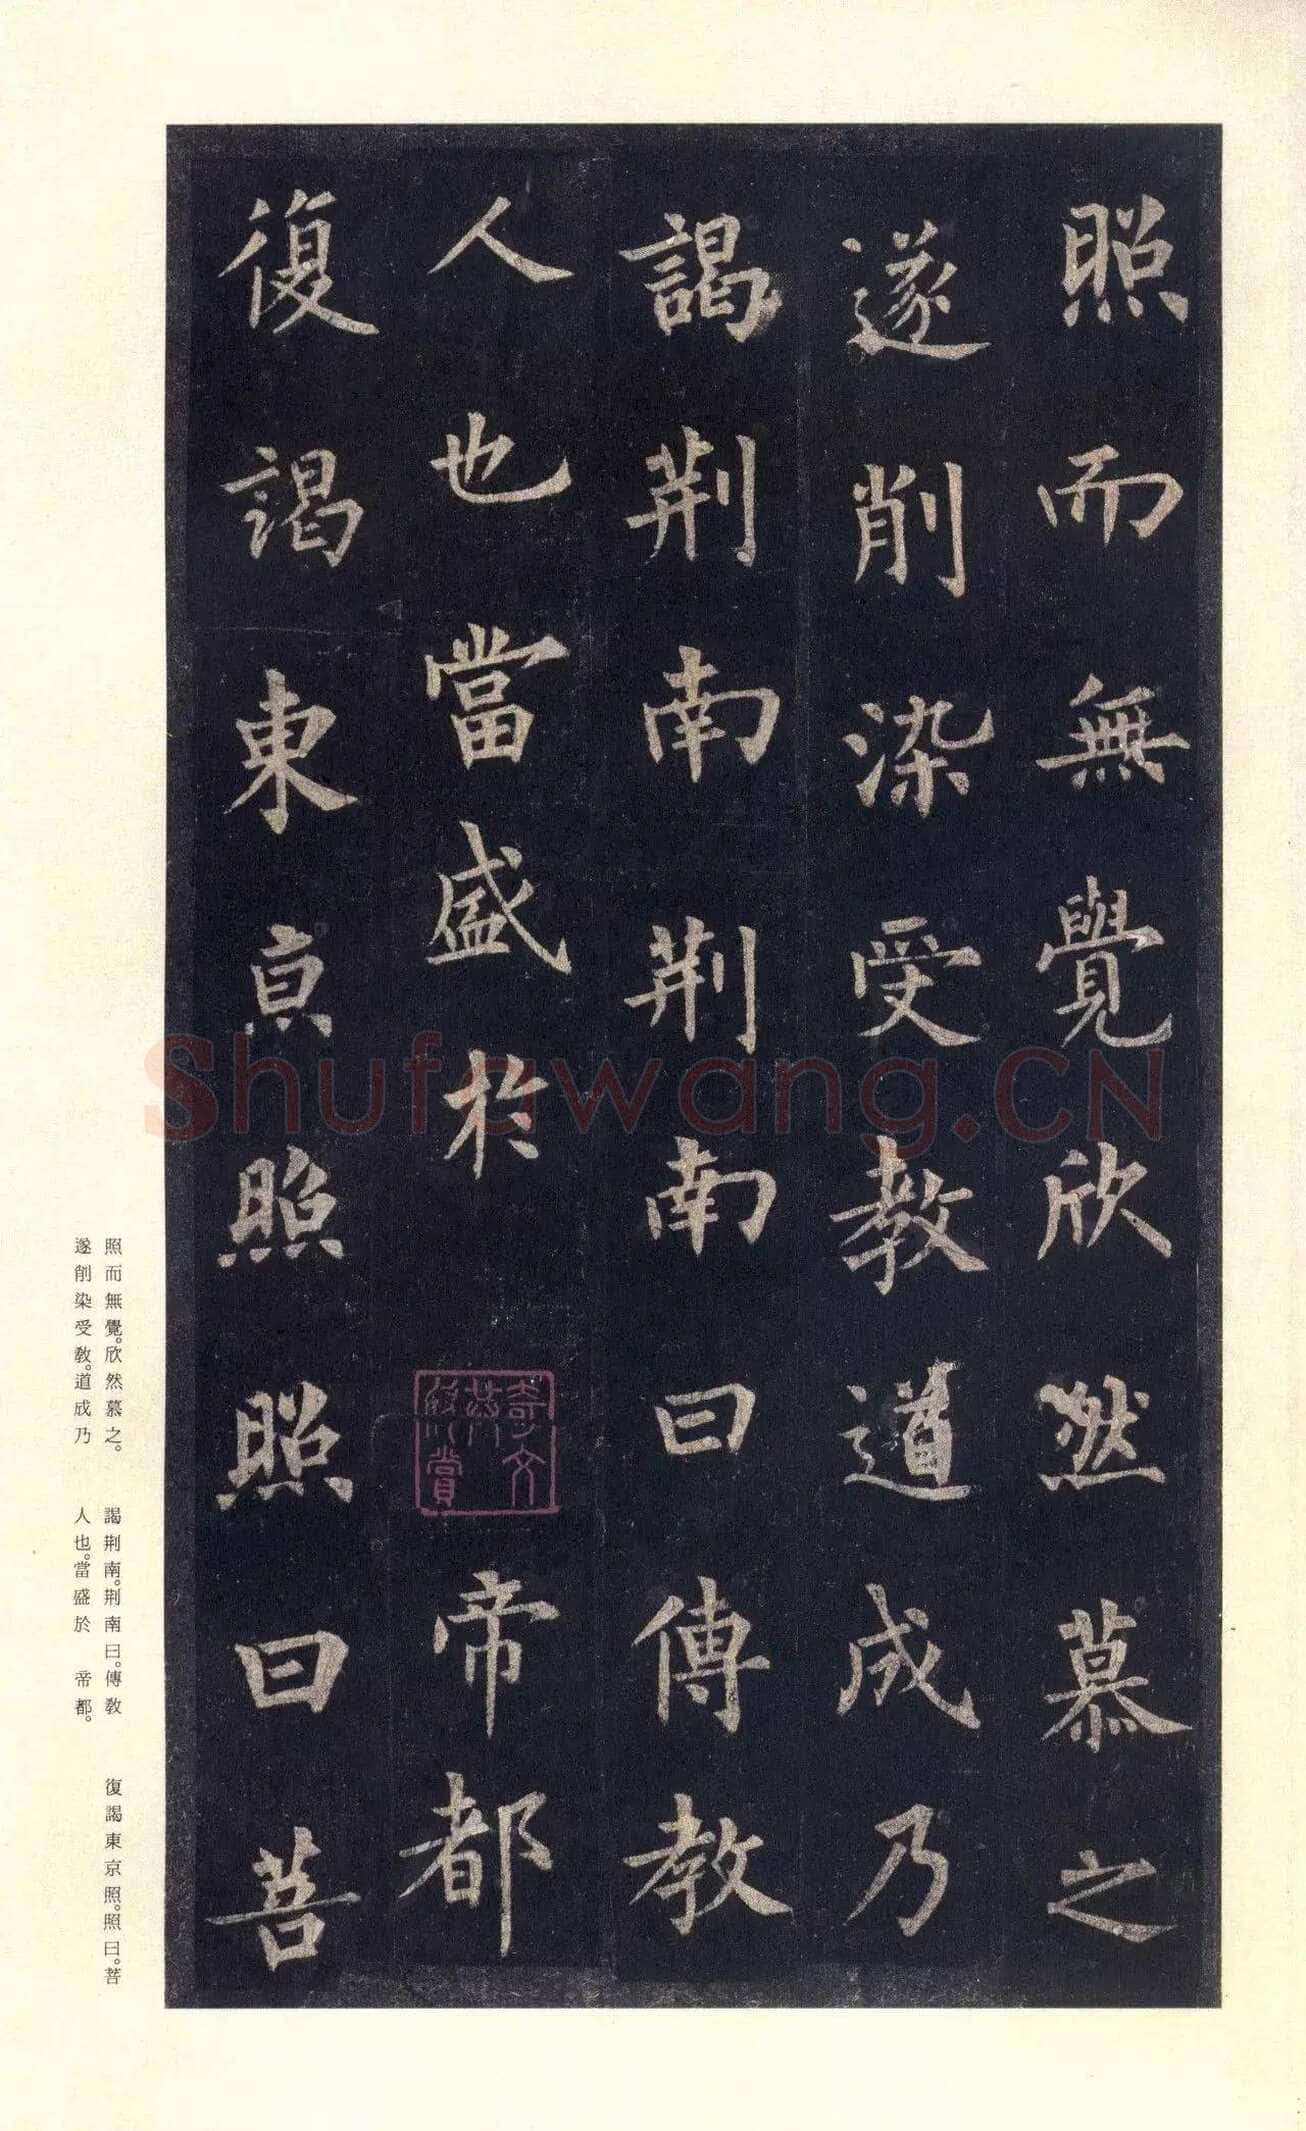 照而無覺欣然慕之
遂削染受教道成乃
謁荆南荆南曰傳教
人也當盛於 帝都
復謁東京照照曰菩
Shufawang.CN
照而無覺。欣然慕之。
遂削染受教。道成乃
謁荆南。荆南曰。傳教
人也。當盛於 帝都。
復謁東京照。照曰。菩